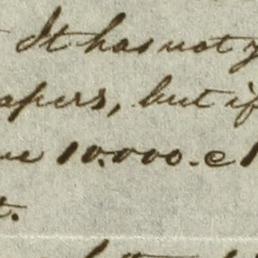 It has not
apers, but if
10.000.
t.